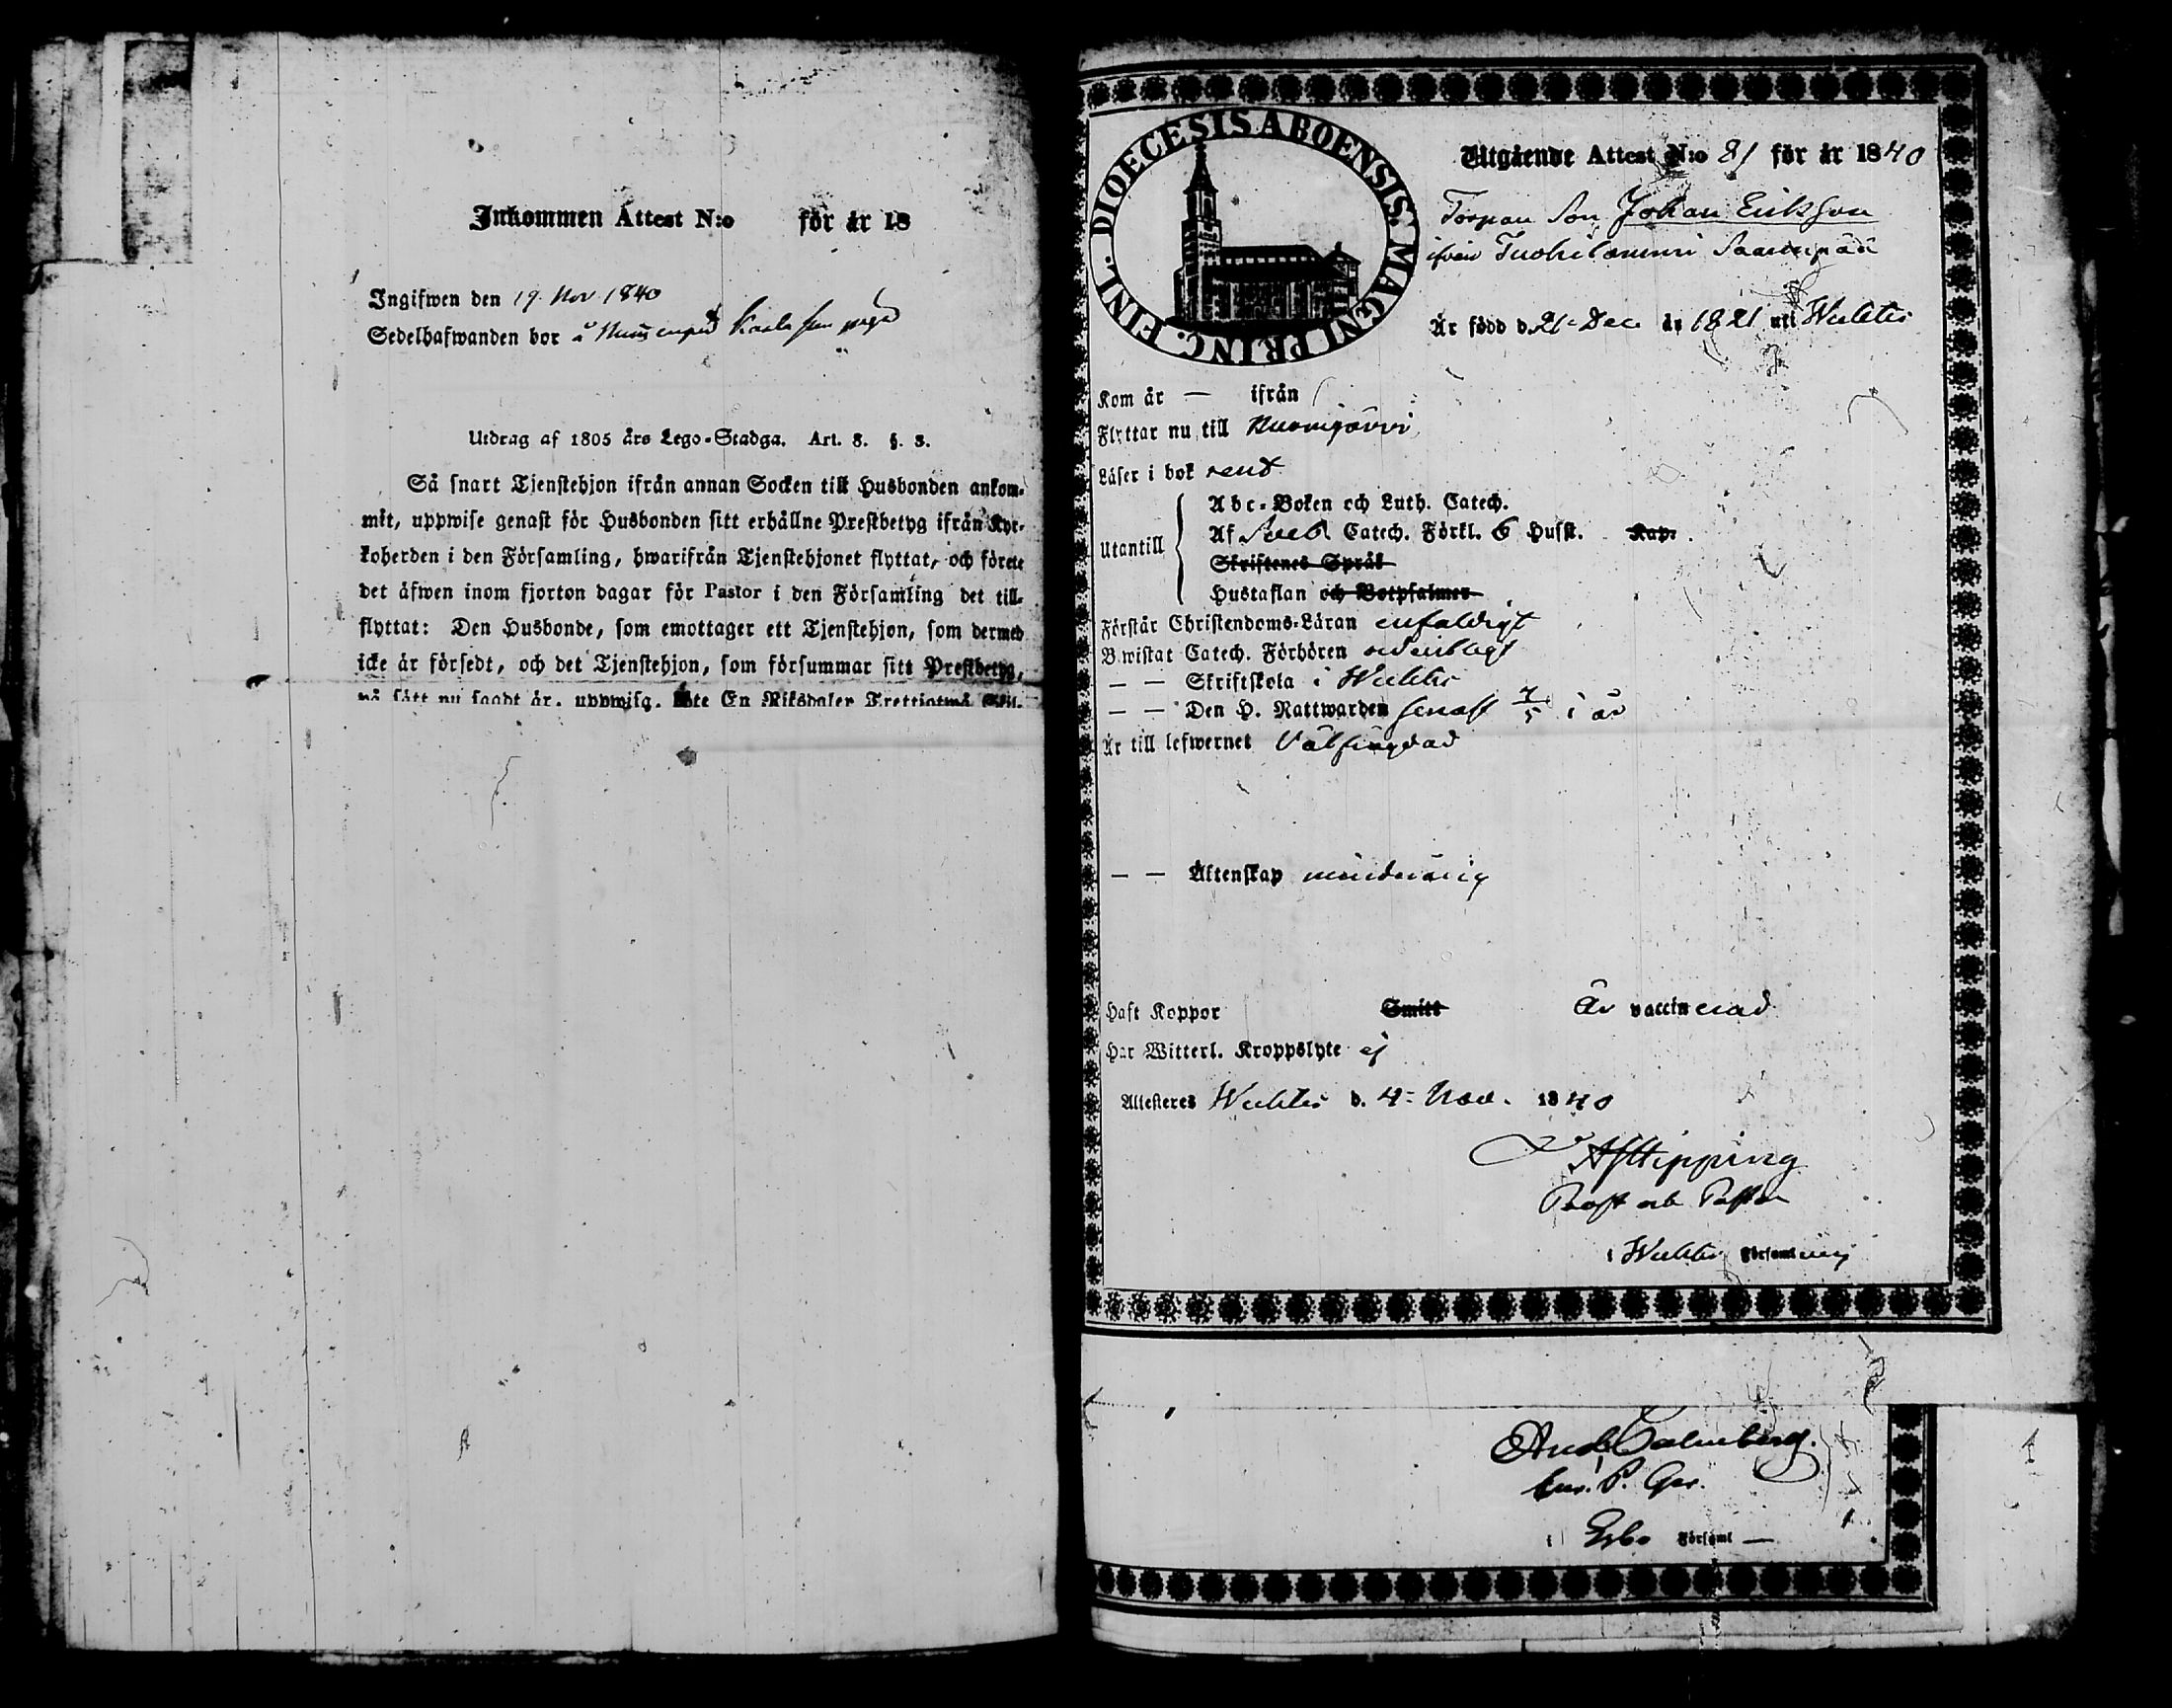 Inkommen Attest N:o för år 18
Ingifwen den 19 Nov 1840
Sedelhafwanden bor å
Utdrag af 1805 års Lego-Stadga. Art. 8. §. 3.
Så snart Tjenstehjon ifrån annan Socken till Husbonden ankom-
mit, uppwise genast för Husbonden sitt erhållne Prestbetyg ifrån Kyr-
koherden i den Församling, hwarifrån Tjenstehjonet flyttat, och förete
det äfwen inom fjorton dagar för Pastor i den Församling det till-
flyttat: Den Husbonde, som emottager ett Tjenstehjon, som dermed
icke är försedt, och det Tjenstehjon, som försummar sitt Prestbetyg,
på sätt nu sagdt är, uppwisa, böte En Riksdaler Trettiotwå Skil-
DIOECESIS ABOENSIS. MAGNI PRINC. FINL.
Utgående Attest N:o 81 för år 1840
Torpare Son Johan Eriksson
ifrån Tuohilammi
Är född d. 21 Dec. år 1821 uti Wichtis
Kom år — ifrån
Flyttar nu till Nurmijärvi
Läser i bok rent
Utantill
Abc-Boken och Luth. Catech.
Af Sveb. Catech. Förkl. 6 Husst. Kap.
Skriftenes Språk
Hustaflan och Botpsalmer
Förstår Christendoms-Läran enfaldigt
Bewistat Catech. Förhören ordentligt
— — Skriftskola i Wichtis
— — Den H. Nattwarden senast 7/5 i år
Är till lefwernet Välfrägdad
— — Äktenskap minderårig
Haft Koppor Smitt Är vaccinerad
Har Witterl. Kroppslyte ej
Attesteras Wichtis d. 4 Nov. 1840
AJHipping
Prost och Pastor
i Wichtis Församling
And. Malmberg.
i Esbo Församl —